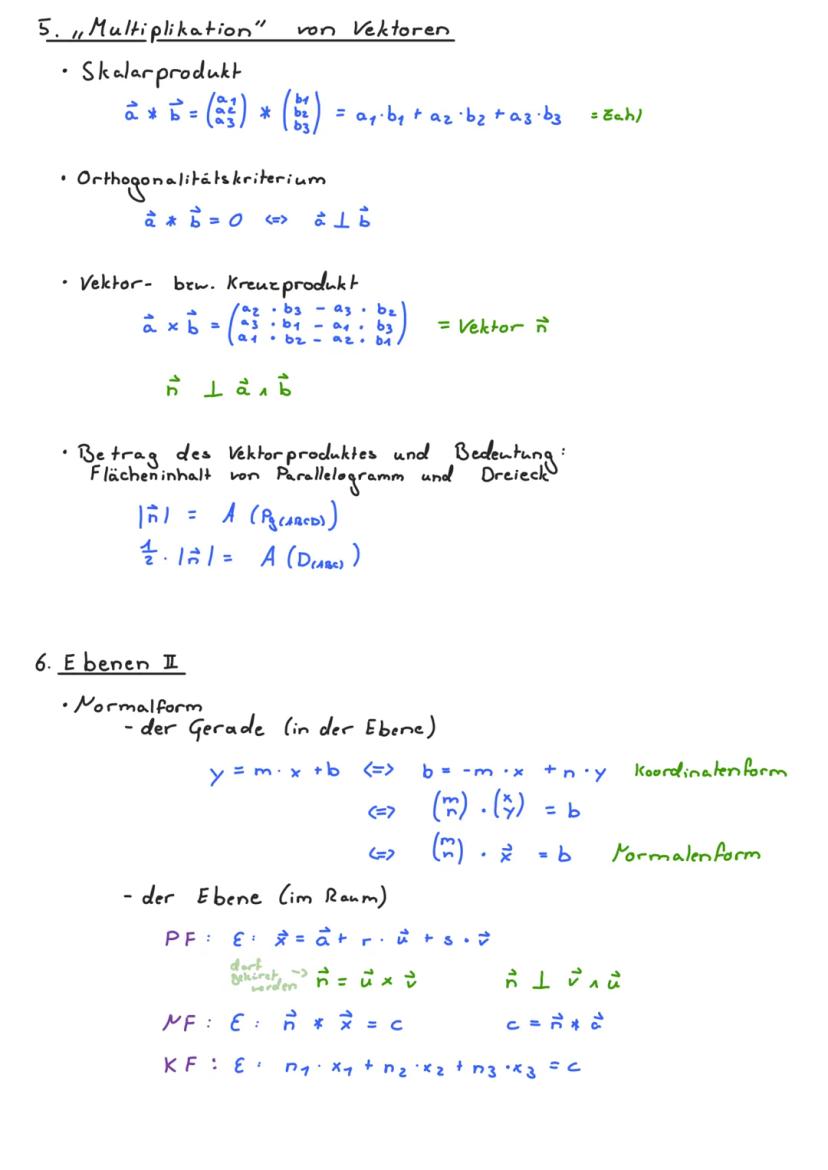 5. „Multiplikation“ von Vektoren
• Skalarprodukt
a⃗ * b⃗ = (a1 a2 a3) * (b1 b2 b3) = a1·b1 + a2·b2 + a3·b3 = Zahl
• Orthogonalitätskriterium
a⃗ * b⃗ = 0 <=> a⃗ ⊥ b⃗
• Vektor- bzw. Kreuzprodukt
a⃗ × b⃗ = (a2 · b3 - a3 · b2
a3 · b1 - a1 · b3
a1 · b2 - a2 · b1) = Vektor n⃗
n⃗ ⊥ a⃗ ∧ b⃗
• Betrag des Vektorproduktes und Bedeutung:
Flächeninhalt von Parallelogramm und Dreieck
|n⃗| = A (Pg(ABCD))
1/2 · |n⃗| = A (D(ABC))
6. Ebenen II
• Normalform
- der Gerade (in der Ebene)
y = m · x + b <=> b = -m · x + n · y Koordinatenform
<=> (m n) · (x y) = b
<=> (m n) · x⃗ = b Normalenform
- der Ebene (im Raum)
PF: ε: x⃗ = a⃗ + r · u⃗ + s · v⃗
darf gekürzt werden -> n⃗ = u⃗ × v⃗ n⃗ ⊥ v⃗ ∧ u⃗
NF: ε: n⃗ * x⃗ = c c = n⃗ * a⃗
KF: ε: n1 · x1 + n2 · x2 + n3 · x3 = c